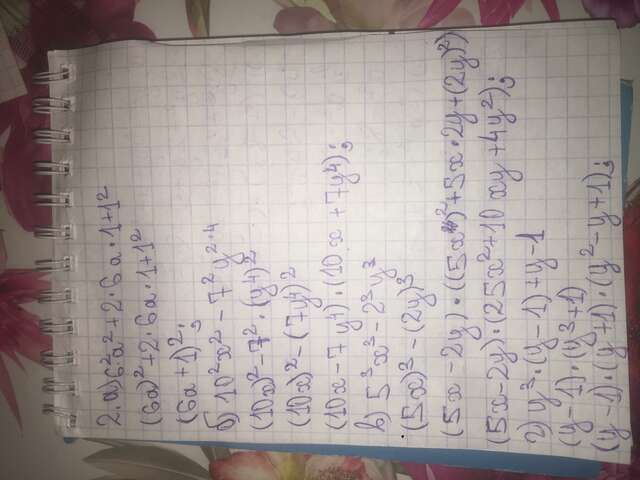 2. а) 6²a² + 2·6a·1+1²
(6a)² + 2·6a·1+1²
(6a + 1)²;
б) 10²x² - 7²y²·⁴
(10x)² - 7²·(y⁴)²
(10x)² - (7y⁴)²
(10x - 7y⁴)·(10x + 7y⁴);
в) 5³x³ - 2³y³
(5x)³ - (2y)³
(5x - 2y)·((5x)² + 5x·2y + (2y)²)
(5x - 2y)·(25x² + 10xy + 4y²);
г) y³·(y - 1) + y - 1
(y - 1)·(y³ + 1)
(y - 1)·(y + 1)·(y² - y + 1);